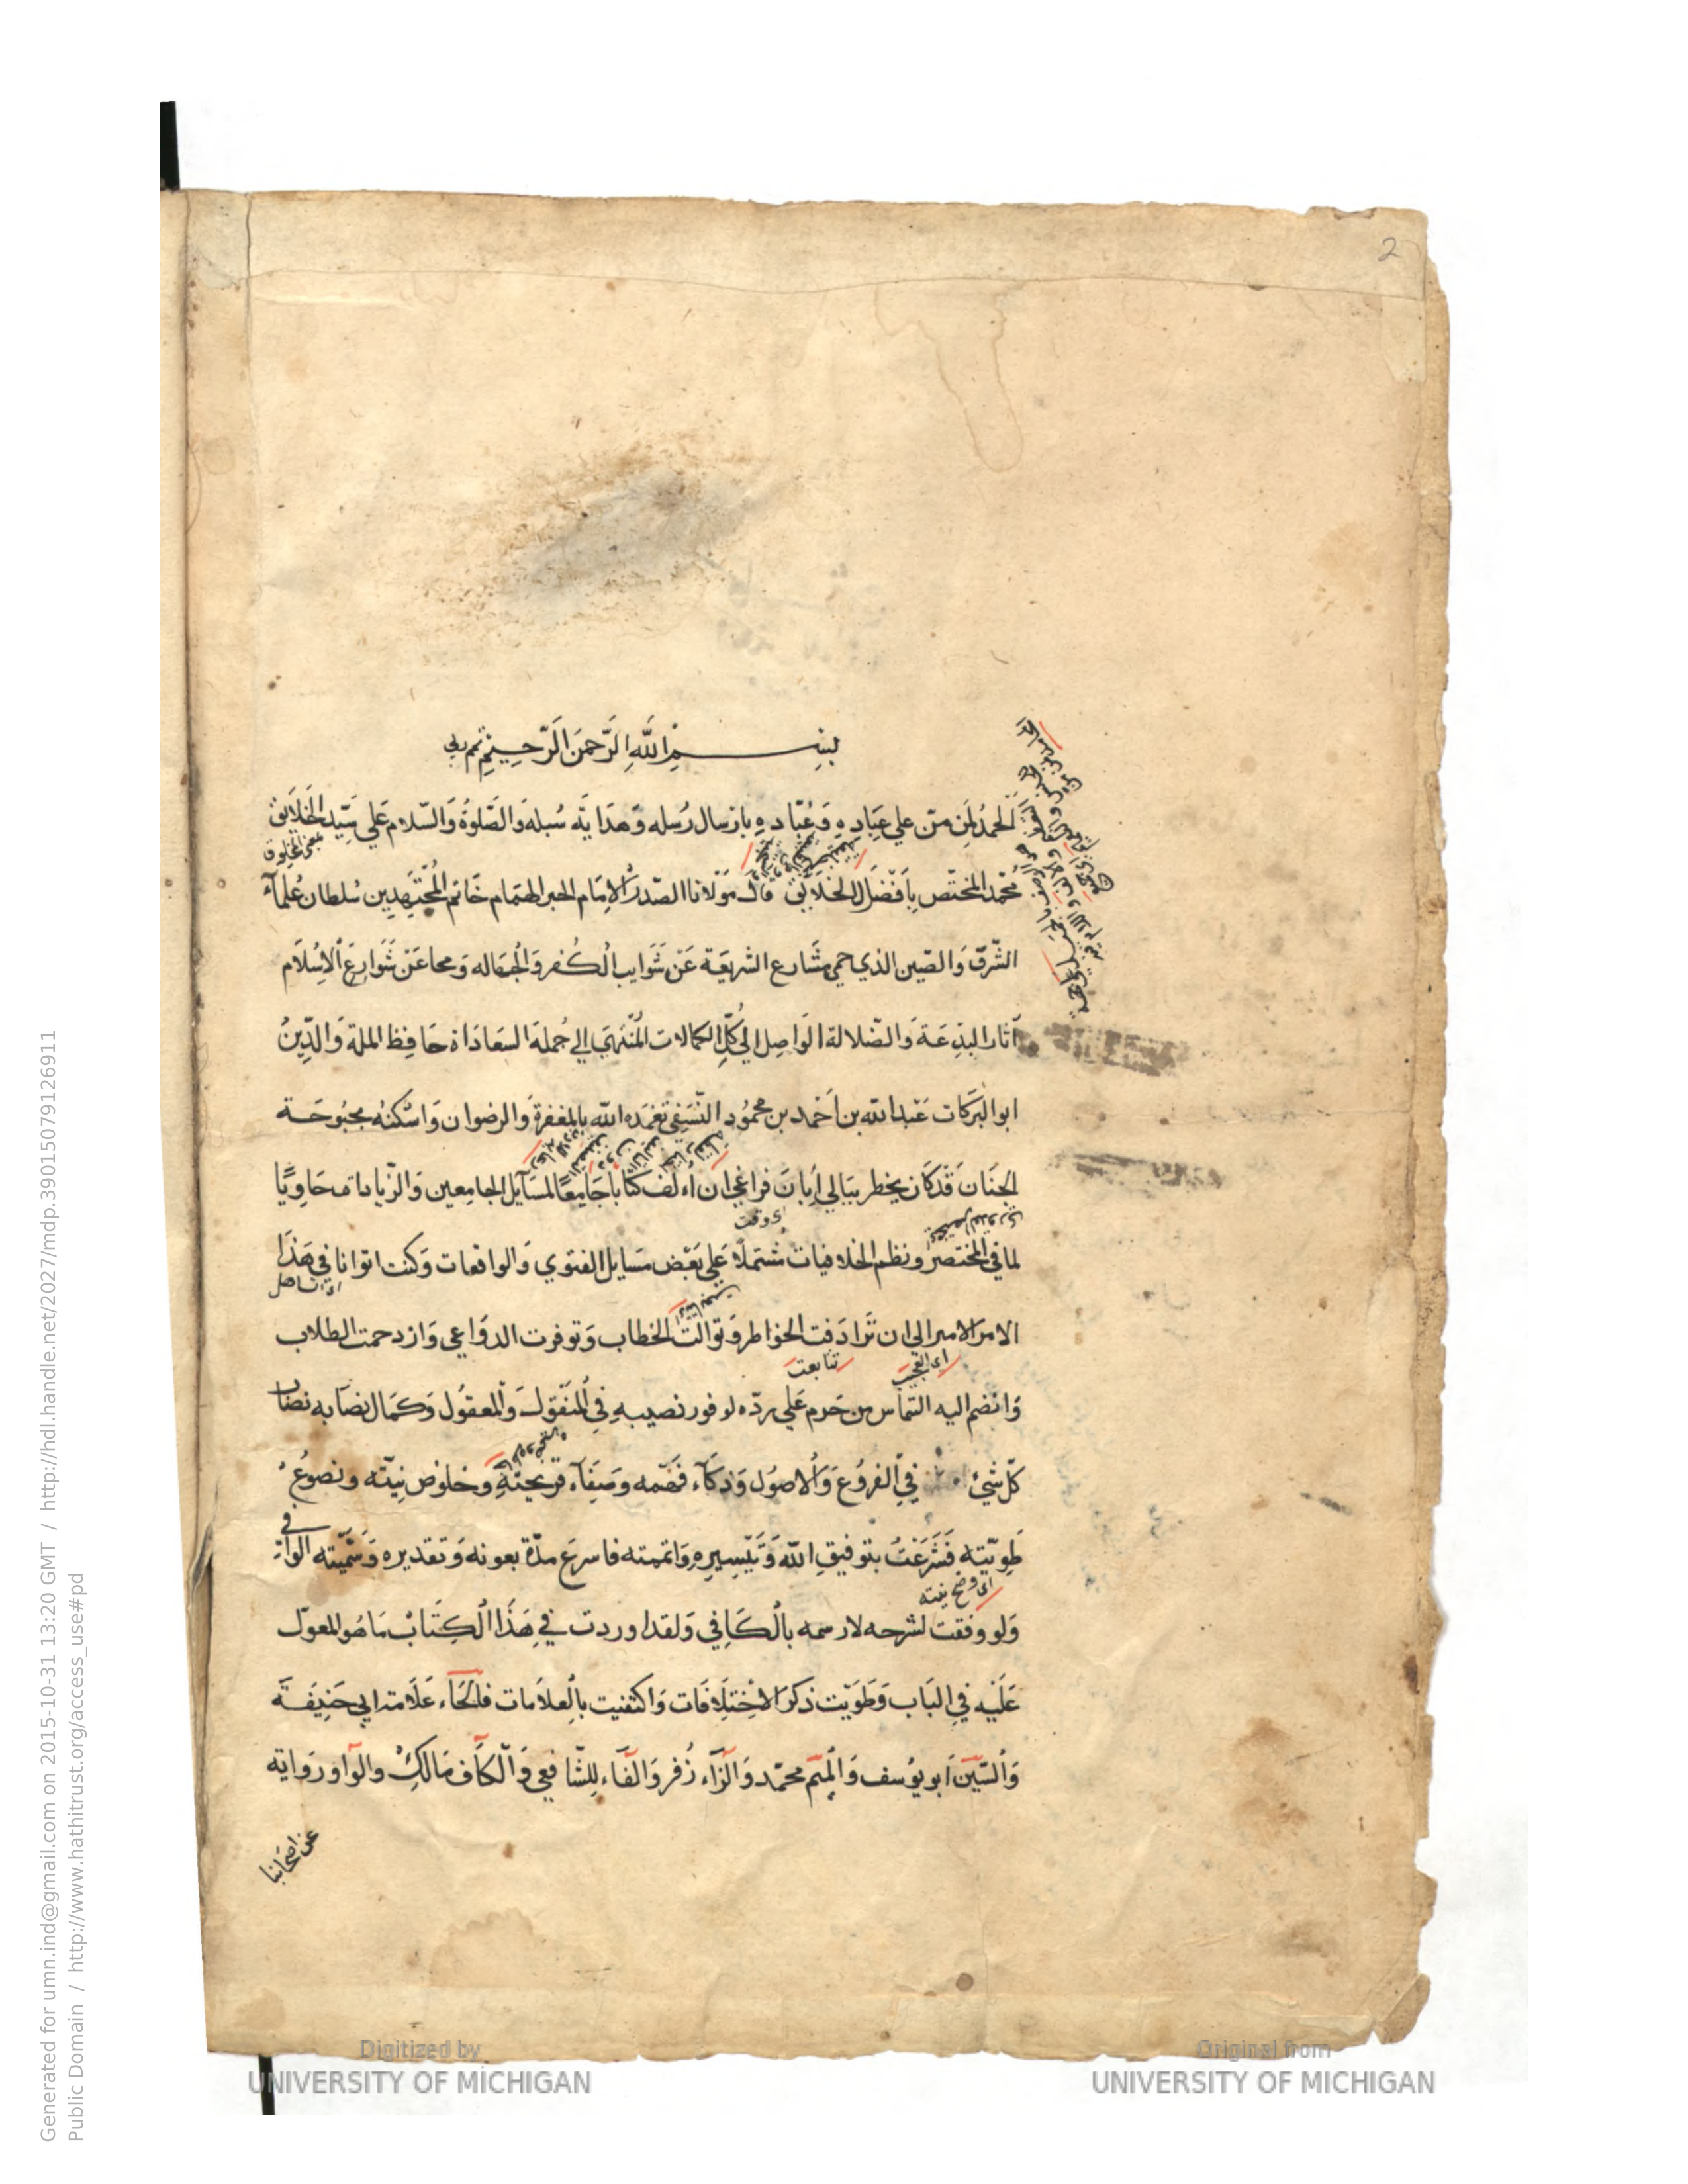 2
بسم الله الرحمن الرحيم
الحمد لمن من علي عباده وعباده بارسال رسله وهداية سبله والصلوة والسلام علي سيد الخلايق
محمد المختص بافضل الخلايق قال مولانا الصدر الامام الحبر الهمام خاتم المجتهدين سلطان علماء
الشرق والصين الذي حمي مشارع الشريعة عن شوايب الكفر والجهاله ومحا عن شوارع الاسلام
آثار البدعة والضلالة الواصل الي كل الكمالات المنتهي الي جملة السعاداة حافظ الملة والدين
ابو البركات عبد الله بن احمد بن محمود النسفي تغمده الله بالمغفرة والرضوان واسكنه بحبوحة
الجنان قد كان يخطر ببالي ابان فراغي ان اءلف كتابا جامعا لمسآيل الجامعين والزيادات حاويا
اي وقت
لما في المختصر ونظم الخلافيات مشتملا علي بعض مسايل الفتوي والواقعات وكنت اتوانا في هذا
الامر الامر الي ان ترادفت الخواطر وتوالت الخطاب وتوفرت الدواعي وازدحمت الطلاب
تتابعت
وانضم اليه التماس من حرم علي رده لوفور نصيبه في المنقول والمعقول وكمال نصابه نصاب
كل شيئ في الفروع والاصول وذكاء فهمه وصفاء قريحته وخلوص نيته ونصوع
طويته فشرعت بتوفيق الله وتيسيره واتممته فاسرع مدة بعونه وتقديره وسميته الوافي
ولو وفقت لشرحه لارسمه بالكافي ولقد اوردت في هذا الكتاب ما هو المعول
عليه في الباب وطويت ذكر الاختلافات واكتفيت بالعلامات فالحاء علامة ابي حنيفة
والسين ابو يوسف والميم محمد والزاء زفر والفاء للشافعي والكاف مالك والواو رواية
عن اصحابنا
Generated for umn.ind@gmail.com on 2015-10-31 13:20 GMT / http://hdl.handle.net/2027/mdp.39015079126911
Public Domain / http://www.hathitrust.org/access_use#pd
Digitized by
UNIVERSITY OF MICHIGAN
Original from
UNIVERSITY OF MICHIGAN